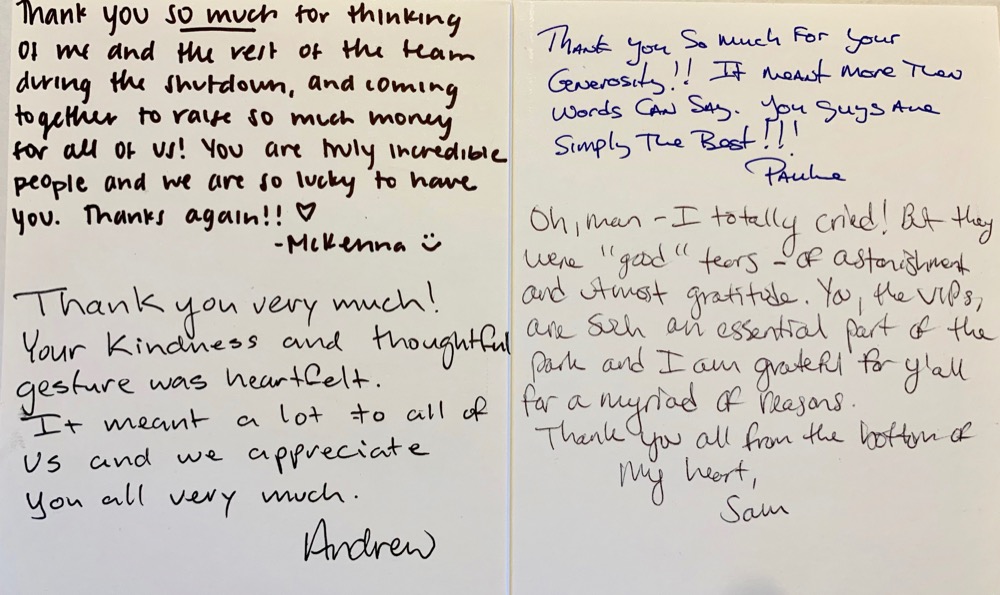 Thank you so much for thinking
of me and the rest of the team
during the shutdown, and coming
together to raise so much money
for all of us! You are truly incredible
people and we are so lucky to have
you. Thanks again!! ♡
-McKenna ☺
Thank you very much!
Your kindness and thoughtful
gesture was heartfelt.
It meant a lot to all of
us and we appreciate
you all very much.
Andrew
Thank you So Much For Your
Generosity!! It meant more Then
words Can Say. You guys Are
Simply The Best!!!
Pauline
Oh, man - I totally cried! But they
were "good" tears - of astonishment
and utmost gratitude. You, the VIPs,
are such an essential part of the
park and I am grateful for y'all
for a myriad of reasons.
Thank you all from the bottom of
my heart,
Sam